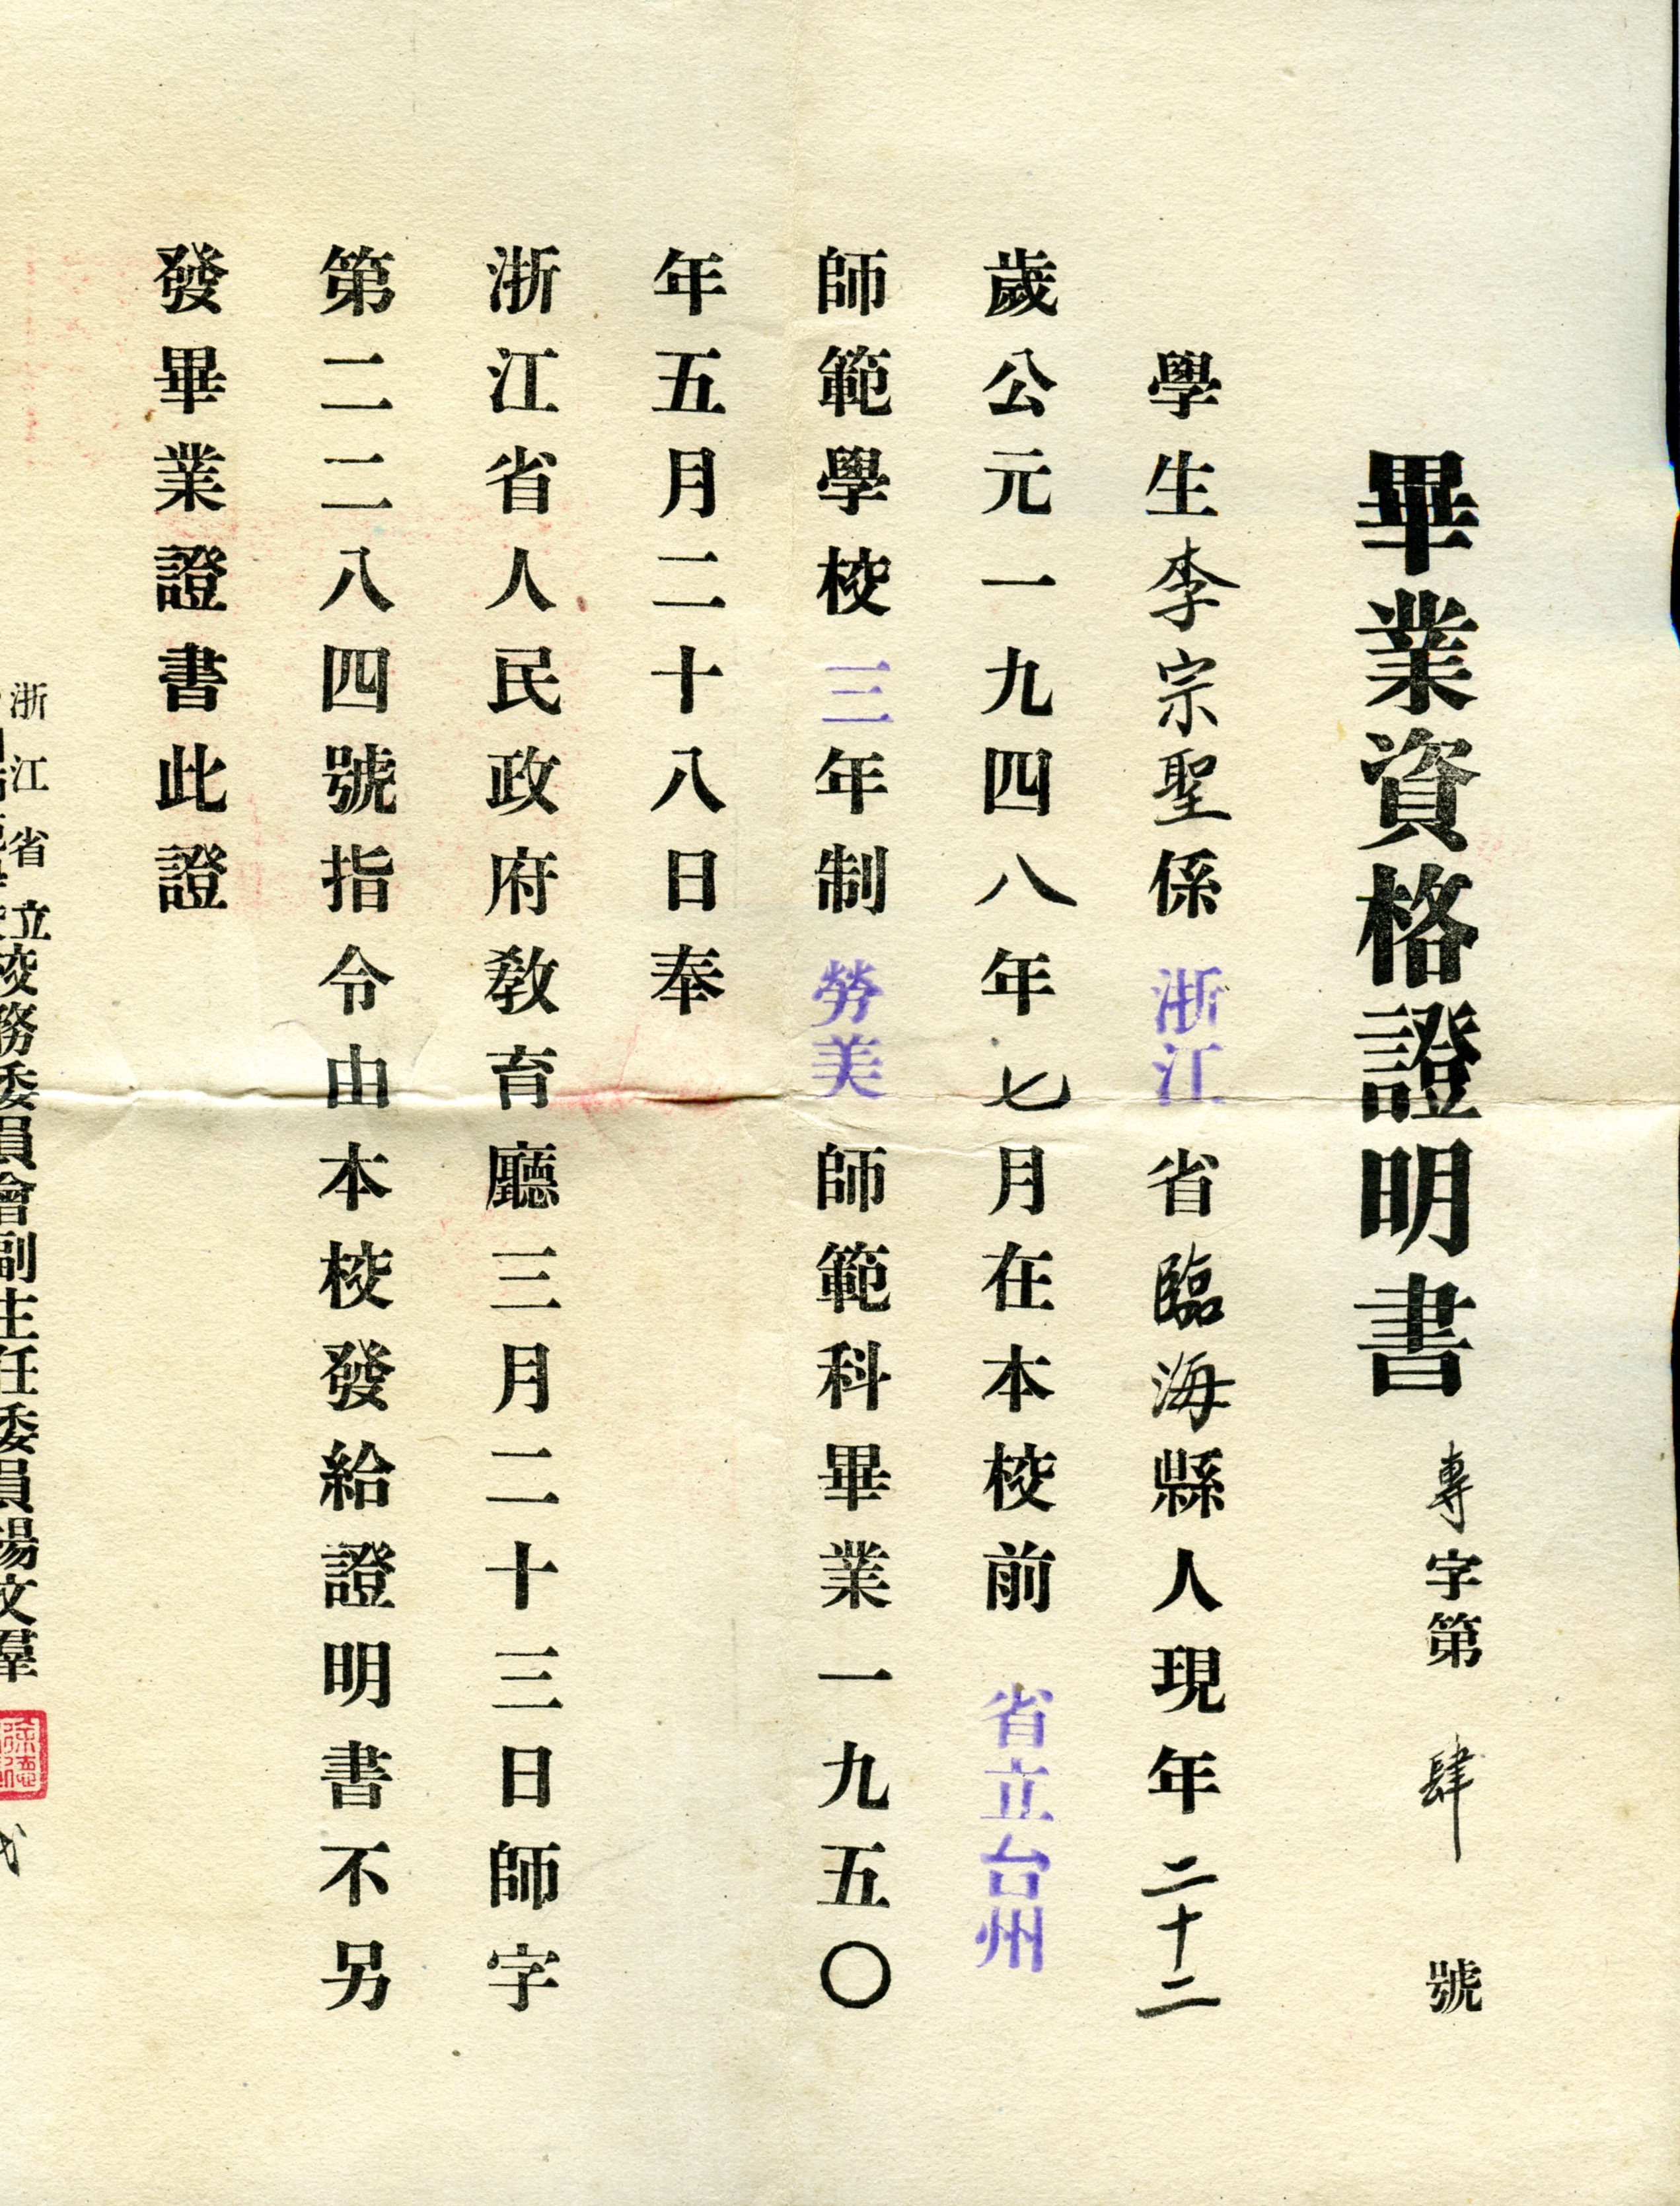 畢業資格證明書 專字第肆號
學生李宗聖係浙江省臨海縣人現年二十二
歲公元一九四八年七月在本校前省立台州
師範學校三年制勞美師範科畢業一九五〇
年五月二十八日奉
浙江省人民政府教育廳三月二十三日師字
第二二八四號指令由本校發給證明書不另
發畢業證書此證
浙江省立
校務委員會副主任委員楊文羣
徐德